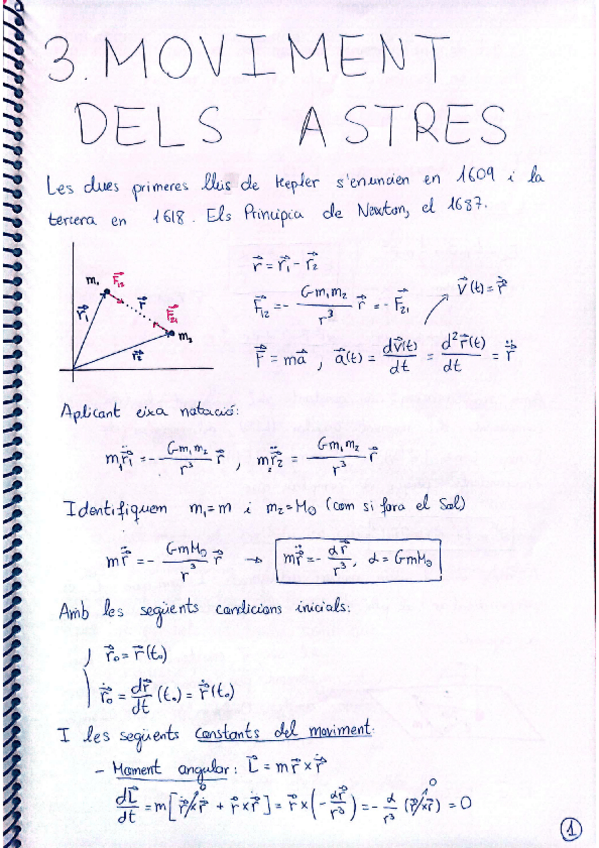 3. MOVIMENT
DELS ASTRES
Les dues primeres lleis de Kepler s'enuncien en 1609 i la
tercera en 1618. Els Principia de Newton, el 1687.
m₁ F⃗₁₂ r⃗ F⃗₂₁ m₂ r⃗₁ r⃗₂
r⃗ = r⃗₁ - r⃗₂
F⃗₁₂ = - Gm₁m₂/r³ r⃗ = - F⃗₂₁
v⃗(t) = ṙ⃗
F⃗ = ma⃗ , a⃗(t) = dv⃗(t)/dt = d²r⃗(t)/dt = r̈⃗
Aplicant eixa notació:
m₁r̈⃗₁ = - Gm₁m₂/r³ r⃗ , m₂r̈⃗₂ = Gm₁m₂/r³ r⃗
Identifiquem m₁ = m i m₂ = M⊙ (com si fora el Sol)
mr̈⃗ = - GmM⊙/r³ r⃗ → mr̈⃗ = - αr⃗/r³, α = GmM⊙
Amb les següents condicions inicials:
r⃗₀ = r⃗(t₀)
ṙ⃗₀ = dr⃗/dt (t₀) = ṙ⃗(t₀)
I les següents constants del moviment:
- Moment angular: L⃗ = mr⃗ × ṙ⃗
dL⃗/dt = m[ṙ⃗ × ṙ⃗ + r⃗ × r̈⃗] = r⃗ × (- αr⃗/r³) = - α/r³ (r⃗ × r⃗) = 0
0 0
1